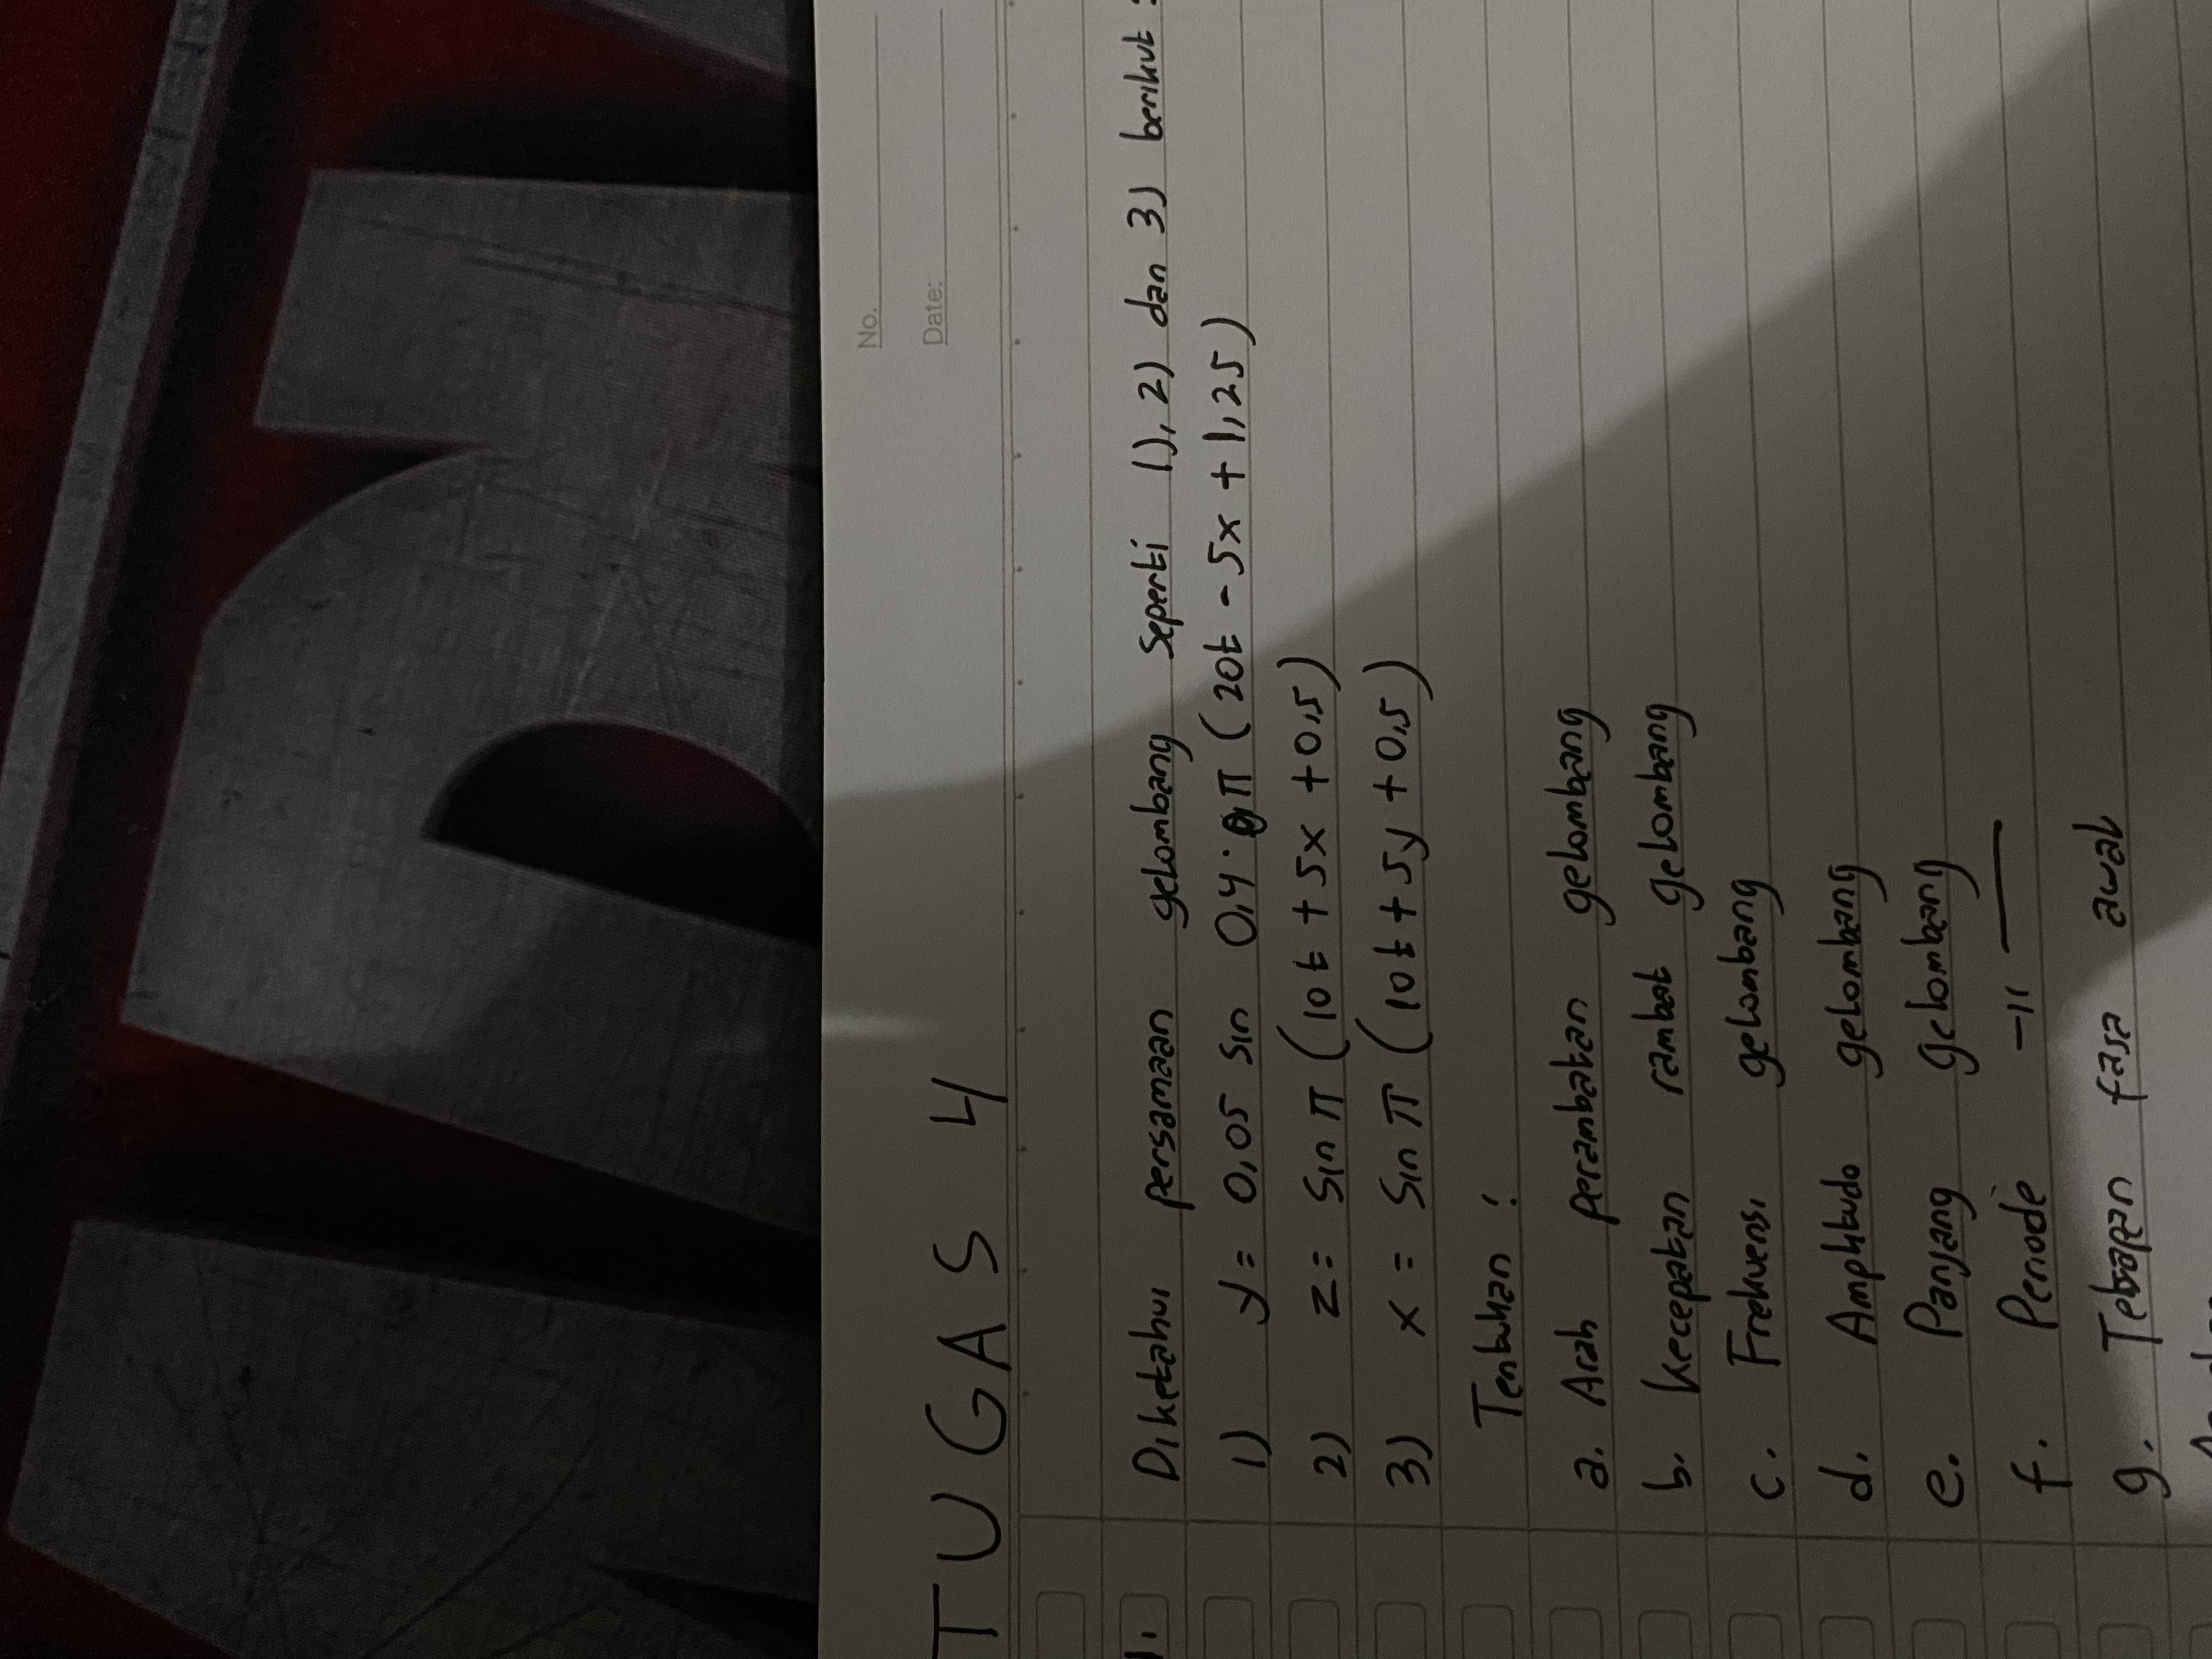 No.
Date:
TUGAS 4
1. Diketahui persamaan gelombang seperti 1), 2) dan 3) berikut :
1) y = 0,05 sin 0,4 · π (20t - 5x + 1,25)
2) z = sin π (10t + 5x + 0,5)
3) x = sin π (10t + 5y + 0,5)
Tentukan :
a. Arah perambatan gelombang
b. Kecepatan rambat gelombang
c. Frekuensi gelombang
d. Amplitudo gelombang
e. Panjang gelombang
f. Periode -11-
g. Tetapan fasa awal